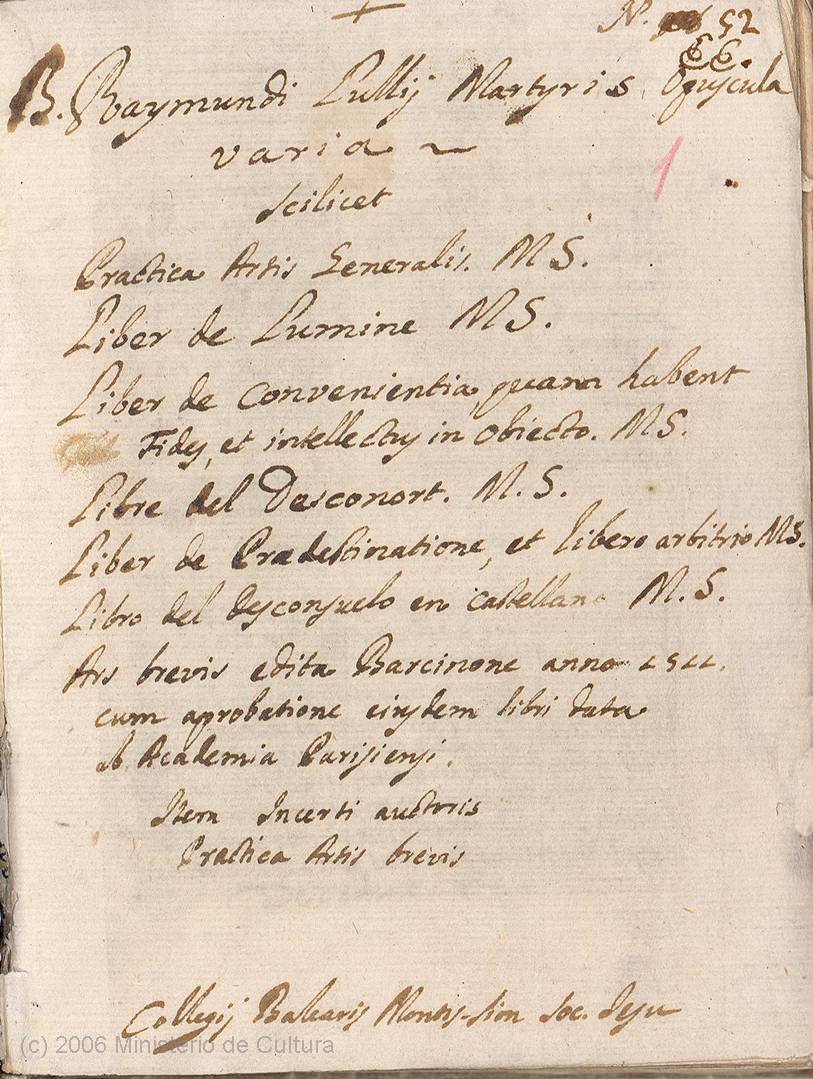 N. 52
66.
B. Raymundi Lullij Martyris Opuscula
varia
scilicet
1
Practica Artis Generalis. M S.
Liber de Lumine M S.
Liber de Convenientia, quam habent
Fides, et intellectus in obiecto. M S.
Libre del Desconort. M. S.
Liber de Prædestinatione, et libero arbitrio M S.
Libro del desconsuelo en castellano M. S.
Ars brevis edita Barcinone anno 1511.
cum aprobatione eiusdem libri data
ab Academia Parisiensi.
Item Incerti auctoris
Practica Artis brevis
Collegij Balearis Montis-Sion Soc. Jesu
(c) 2006 Ministerio de Cultura